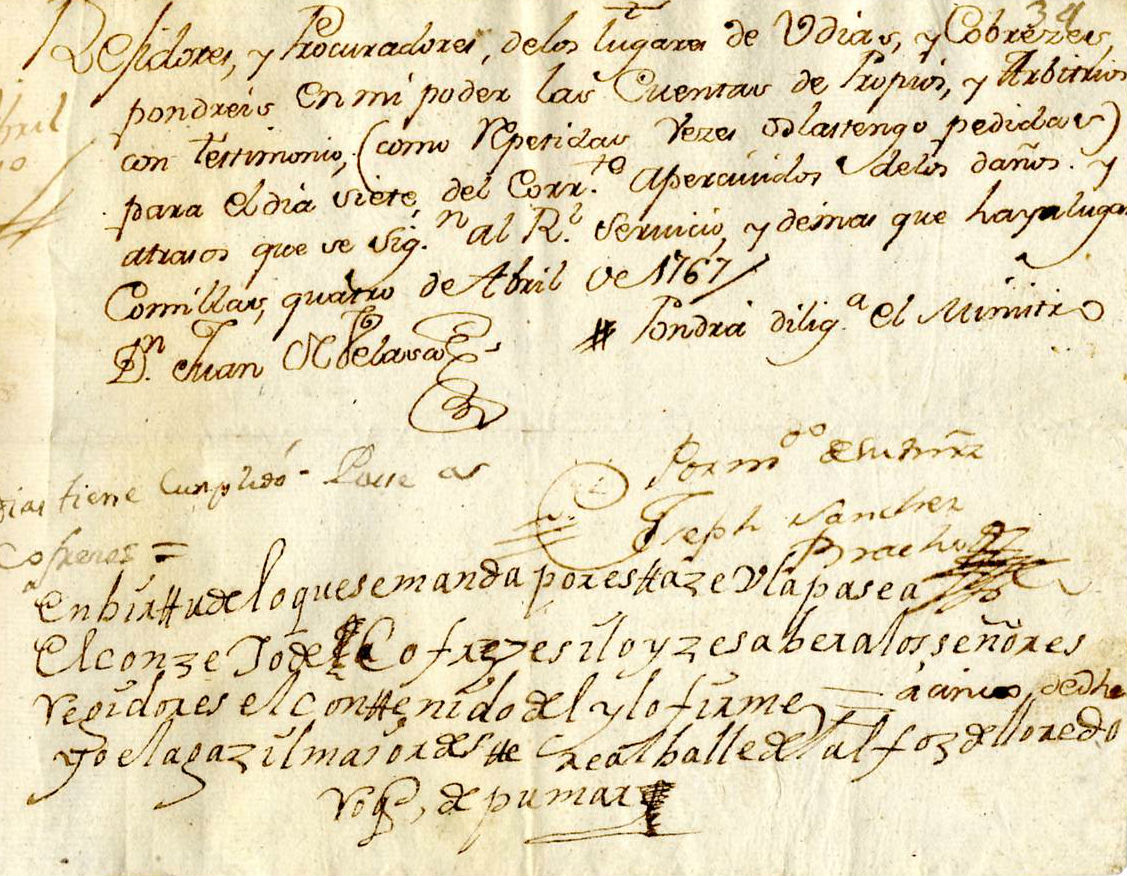 34
Rexidores, y Procuradores, delos lugares de Vdias, y Cobrezes,
pondreis en mi poder las Cuentas de Propios, y Arbitrios
con testimonio, (como repetidas vezes os las tengo pedidas)
para el dia siete, del Corr.te apercividos delos daños. y
atrasos que se sig.n al R.l servicio, y demas que haya lugar
Comillas, quatro de Abril de 1767
D.n Juan
# Pondrá dilig.a el Ministro
Por m.do de su mrz
Joseph Sanchez
Bracho
dias tiene cumplido - Passe a
Cofreces =
en birttu de lo que se manda por estta ze Vla pase a
El conzeJo de Cofrezes i lo yze saber a los señores
regidores el conttenido del y lo firme = a cinco de dho
yo el agazil maior de stte real balle de alfoz de lloredo
de pumar